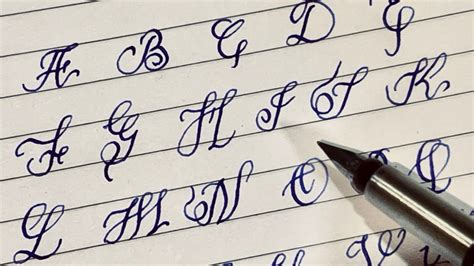 A B C D E
F G H I J K
L M N O Q